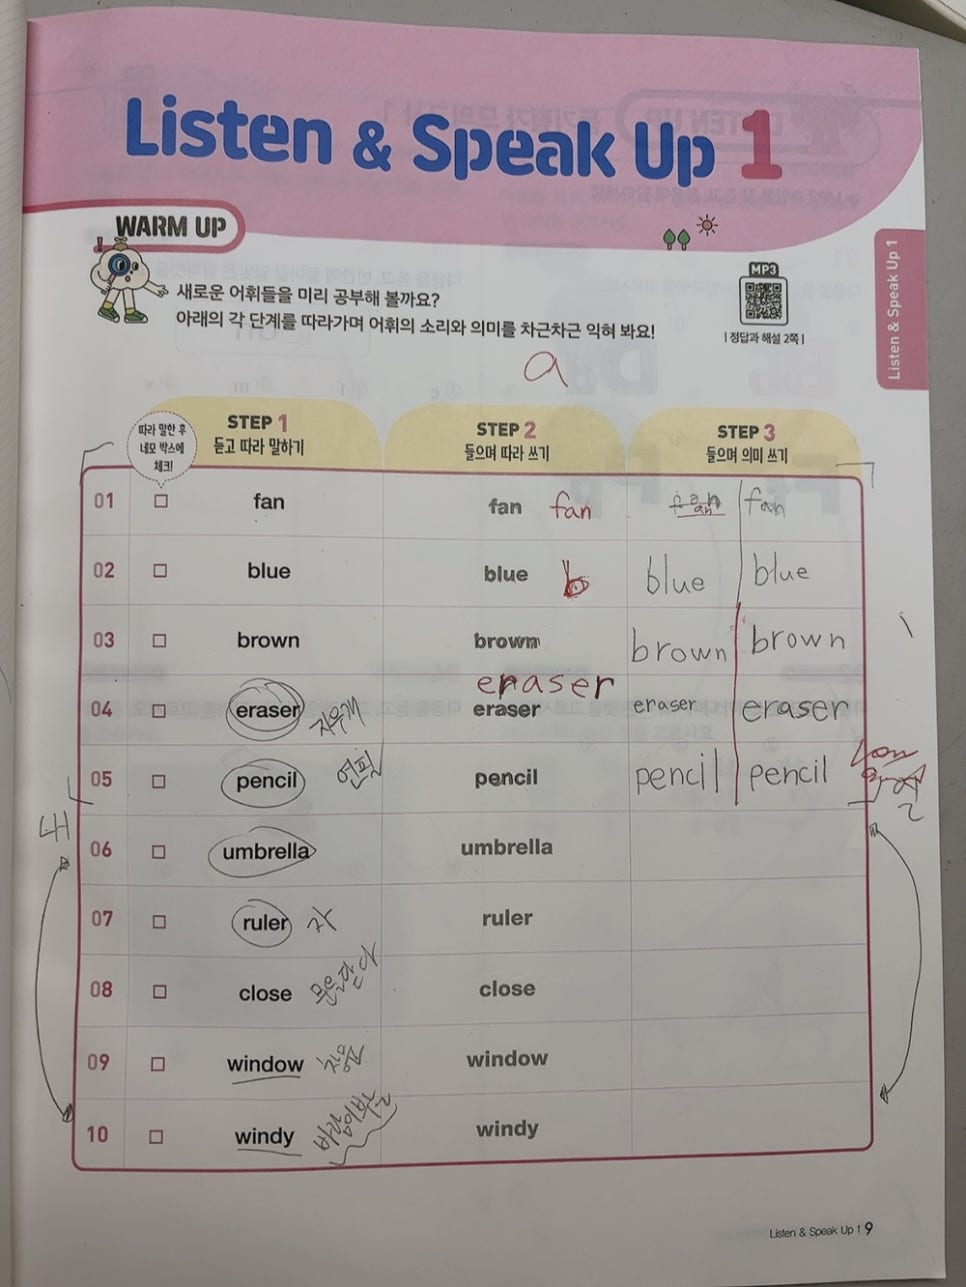 Listen & Speak Up 1
WARM UP
새로운 어휘들을 미리 공부해 볼까요?
아래의 각 단계를 따라가며 어휘의 소리와 의미를 차근차근 익혀 봐요!
MP3
| 정답과 해설 2쪽 |
Listen & Speak Up 1
a
따라 말한 후
네모 박스에
체크!
STEP 1
듣고 따라 말하기
STEP 2
들으며 따라 쓰기
STEP 3
들으며 의미 쓰기
01 fan fan fan fan fan
02 blue blue b blue blue
03 brown brown brown brown
eraser
04 eraser 지우개 eraser eraser eraser
05 pencil 연필 pencil pencil pencil
06 umbrella umbrella
07 ruler 자 ruler
08 close 문을닫다 close
09 window 창문 window
10 windy windy
Listen & Speak Up 1 9